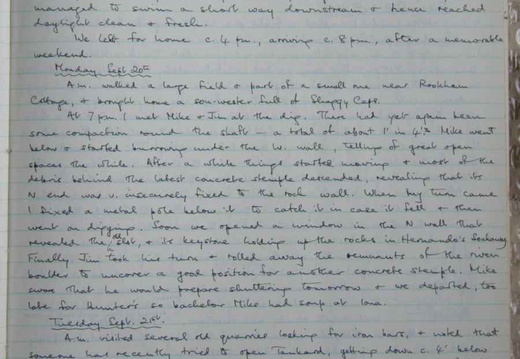 managed to swim a short way downstream & hence reached
daylight clean & fresh.
We left for home c. 4 pm., arriving c. 8 pm., after a memorable
weekend.
Monday Sept 20th
A.m. walked a large field & part of a small one near Rookham
Cottage, & brought home a sou-wester full of Shaggy Caps.
At 7 pm I met Mike & Jim at the dig. There had yet again been
some compaction round the shaft - a total of about 1' in 4'. Mike went
below & started burrowing under the W. wall, telling of great open
spaces the while. After a while things started moving & most of the
debris behind the latest concrete stemple descended, revealing that its
N end was v. insecurely fixed to the rock wall. When my turn came
I fixed a metal pole below it to catch it in case it fell & then
went on digging. Soon we opened a window in the N wall that
revealed the slot, & its keystone holding up the rocks in Hernando's
Finally Jim took his turn & rolled away the remnants of the riven
boulder to uncover a good position for another concrete stemple. Mike
swore that he would prepare shuttering tomorrow & we departed, too
late for Hunter's so bachelor Mike had soup at Iona.
Tuesday Sept. 21st
A.m. visited several old quarries looking for iron bars, & noted that
someone has recently tried to open Tankard, getting down c. 4' below